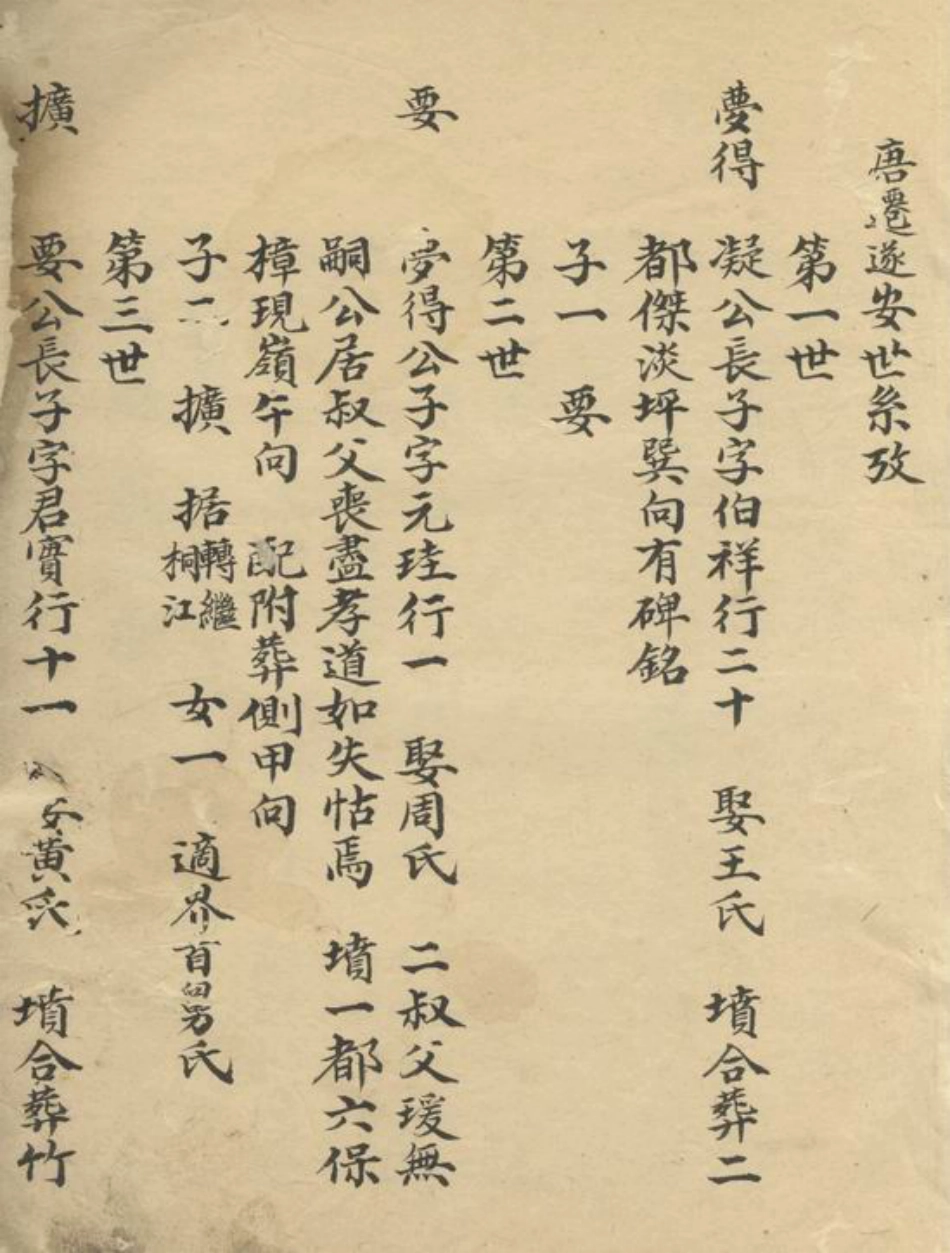 唐遷遂安世系攷
第一世
夢得 凝公長子字伯祥行二十 娶王氏 墳合葬二
都傑淡坪巽向有碑銘
子一 要
第二世
要 夢得公子字元珪行一 娶周氏 二叔父瑗無
嗣公居叔父喪盡孝道如失怙焉 墳一都六保
樟現嶺午向 配附葬側甲向
子二 擴 据轉繼桐江 女一 適界首 氏
第三世
擴 要公長子字君實行十一 黃氏 墳合葬竹